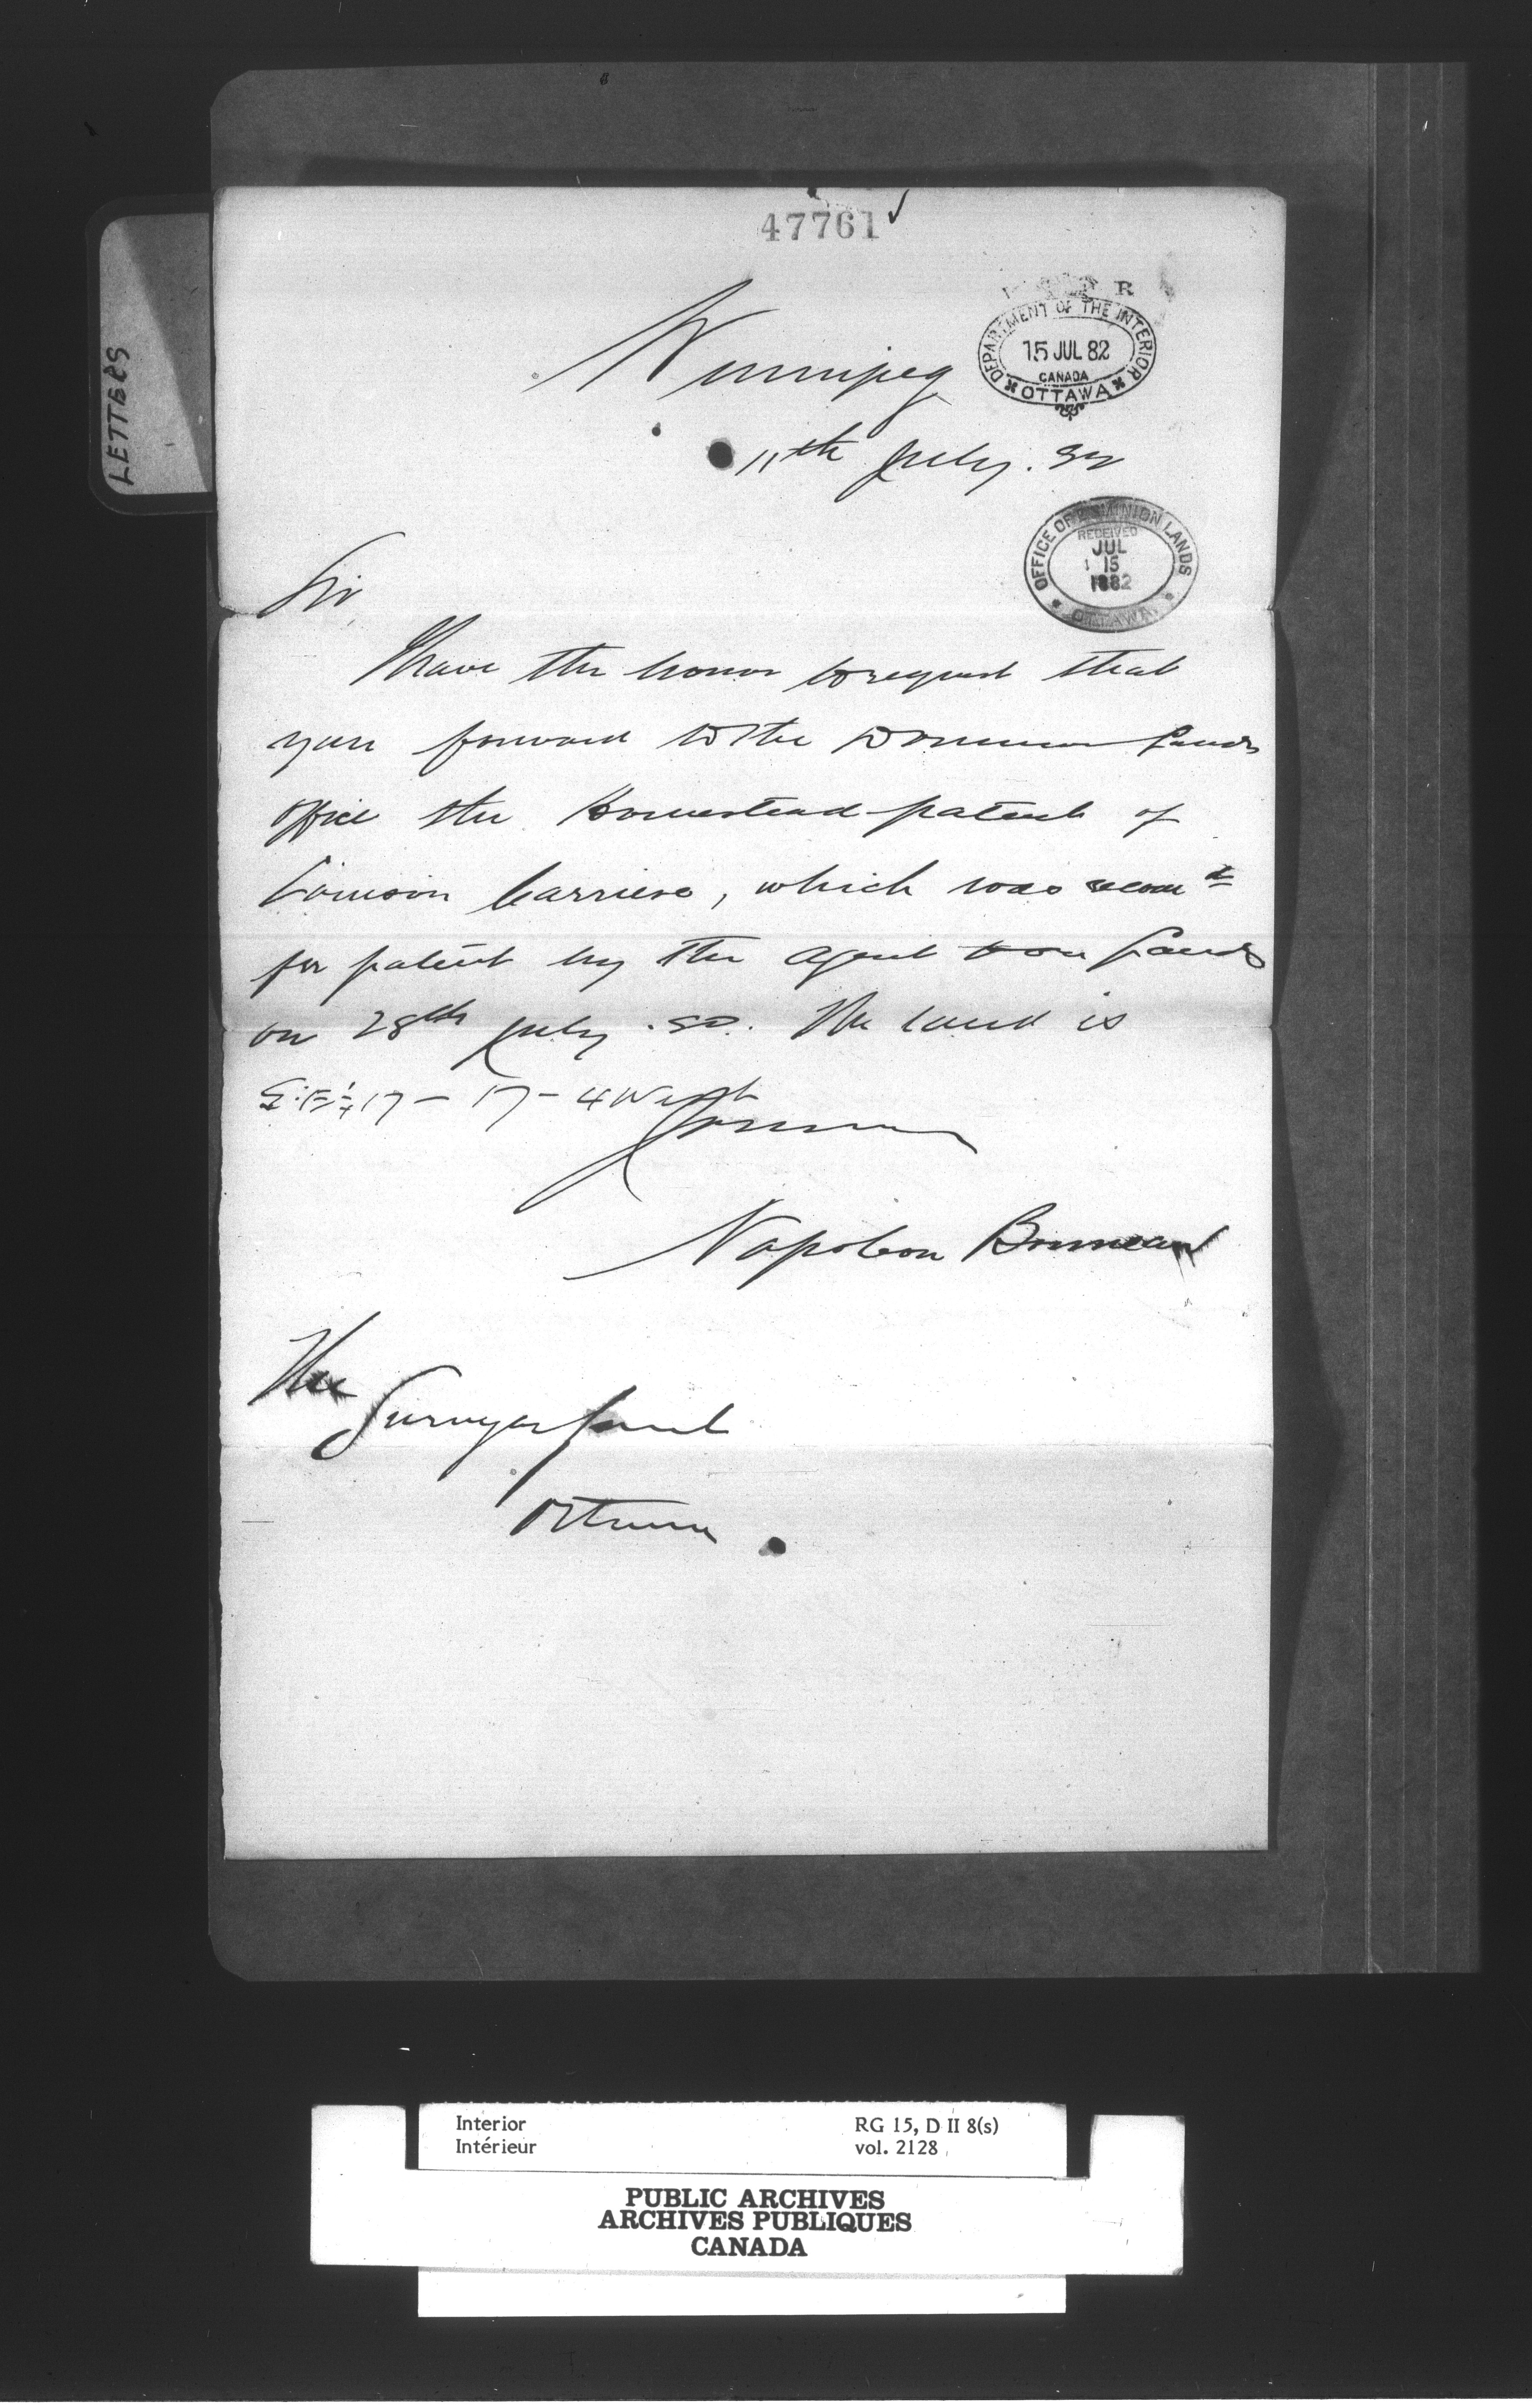 47761
LETTERS
R
DEPARTMENT OF THE INTERIOR
15 JUL 82
CANADA
OTTAWA
Winnipeg
11th July. 82
OFFICE OF DOMINION LANDS
RECEIVED
JUL
15
1882
OTTAWA
Sir,
I have the honor to request that
you forward to the Dominion Lands
Office the Homestead patent of
Carriere, which was recom d
for patent by the Agent Dom Lands
on 28th July. 80. The land is
S.E.¼ 17 - 17 - 4 West
Napoleon Bonneau
The
Surveyor Genl
Ottawa
Interior
Intérieur
RG 15, D II 8(s)
vol. 2128
PUBLIC ARCHIVES
ARCHIVES PUBLIQUES
CANADA